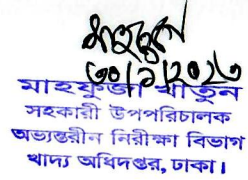 ৩০/১/২০২৩
মাহফুজা খাতুন
সহকারী উপপরিচালক
অভ্যন্তরীন নিরীক্ষা বিভাগ
খাদ্য অধিদপ্তর, ঢাকা।